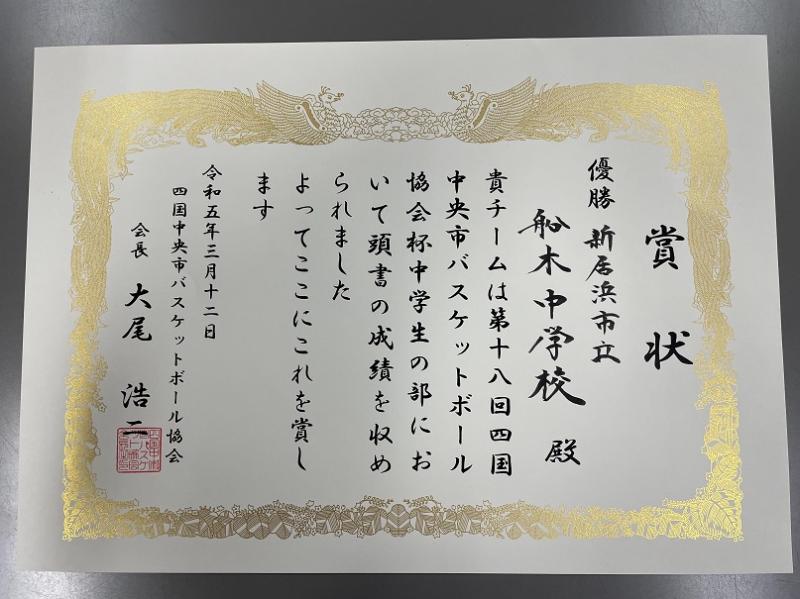 賞状
優勝 新居浜市立
船木中学校 殿
貴チームは第十八回四国
中央市バスケットボール
協会杯中学生の部にお
いて頭書の成績を収め
られました
よってここにこれを賞し
ます
令和五年三月十二日
四国中央市バスケットボール協会
会長 大尾 浩二